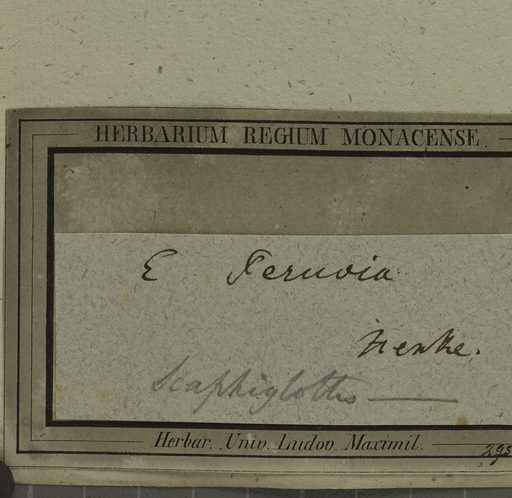 HERBARIUM REGIUM MONACENSE
E Peruvia
Henke.
Scaphiglottis
Herbar. Univ. Ludov. Maximil.
295